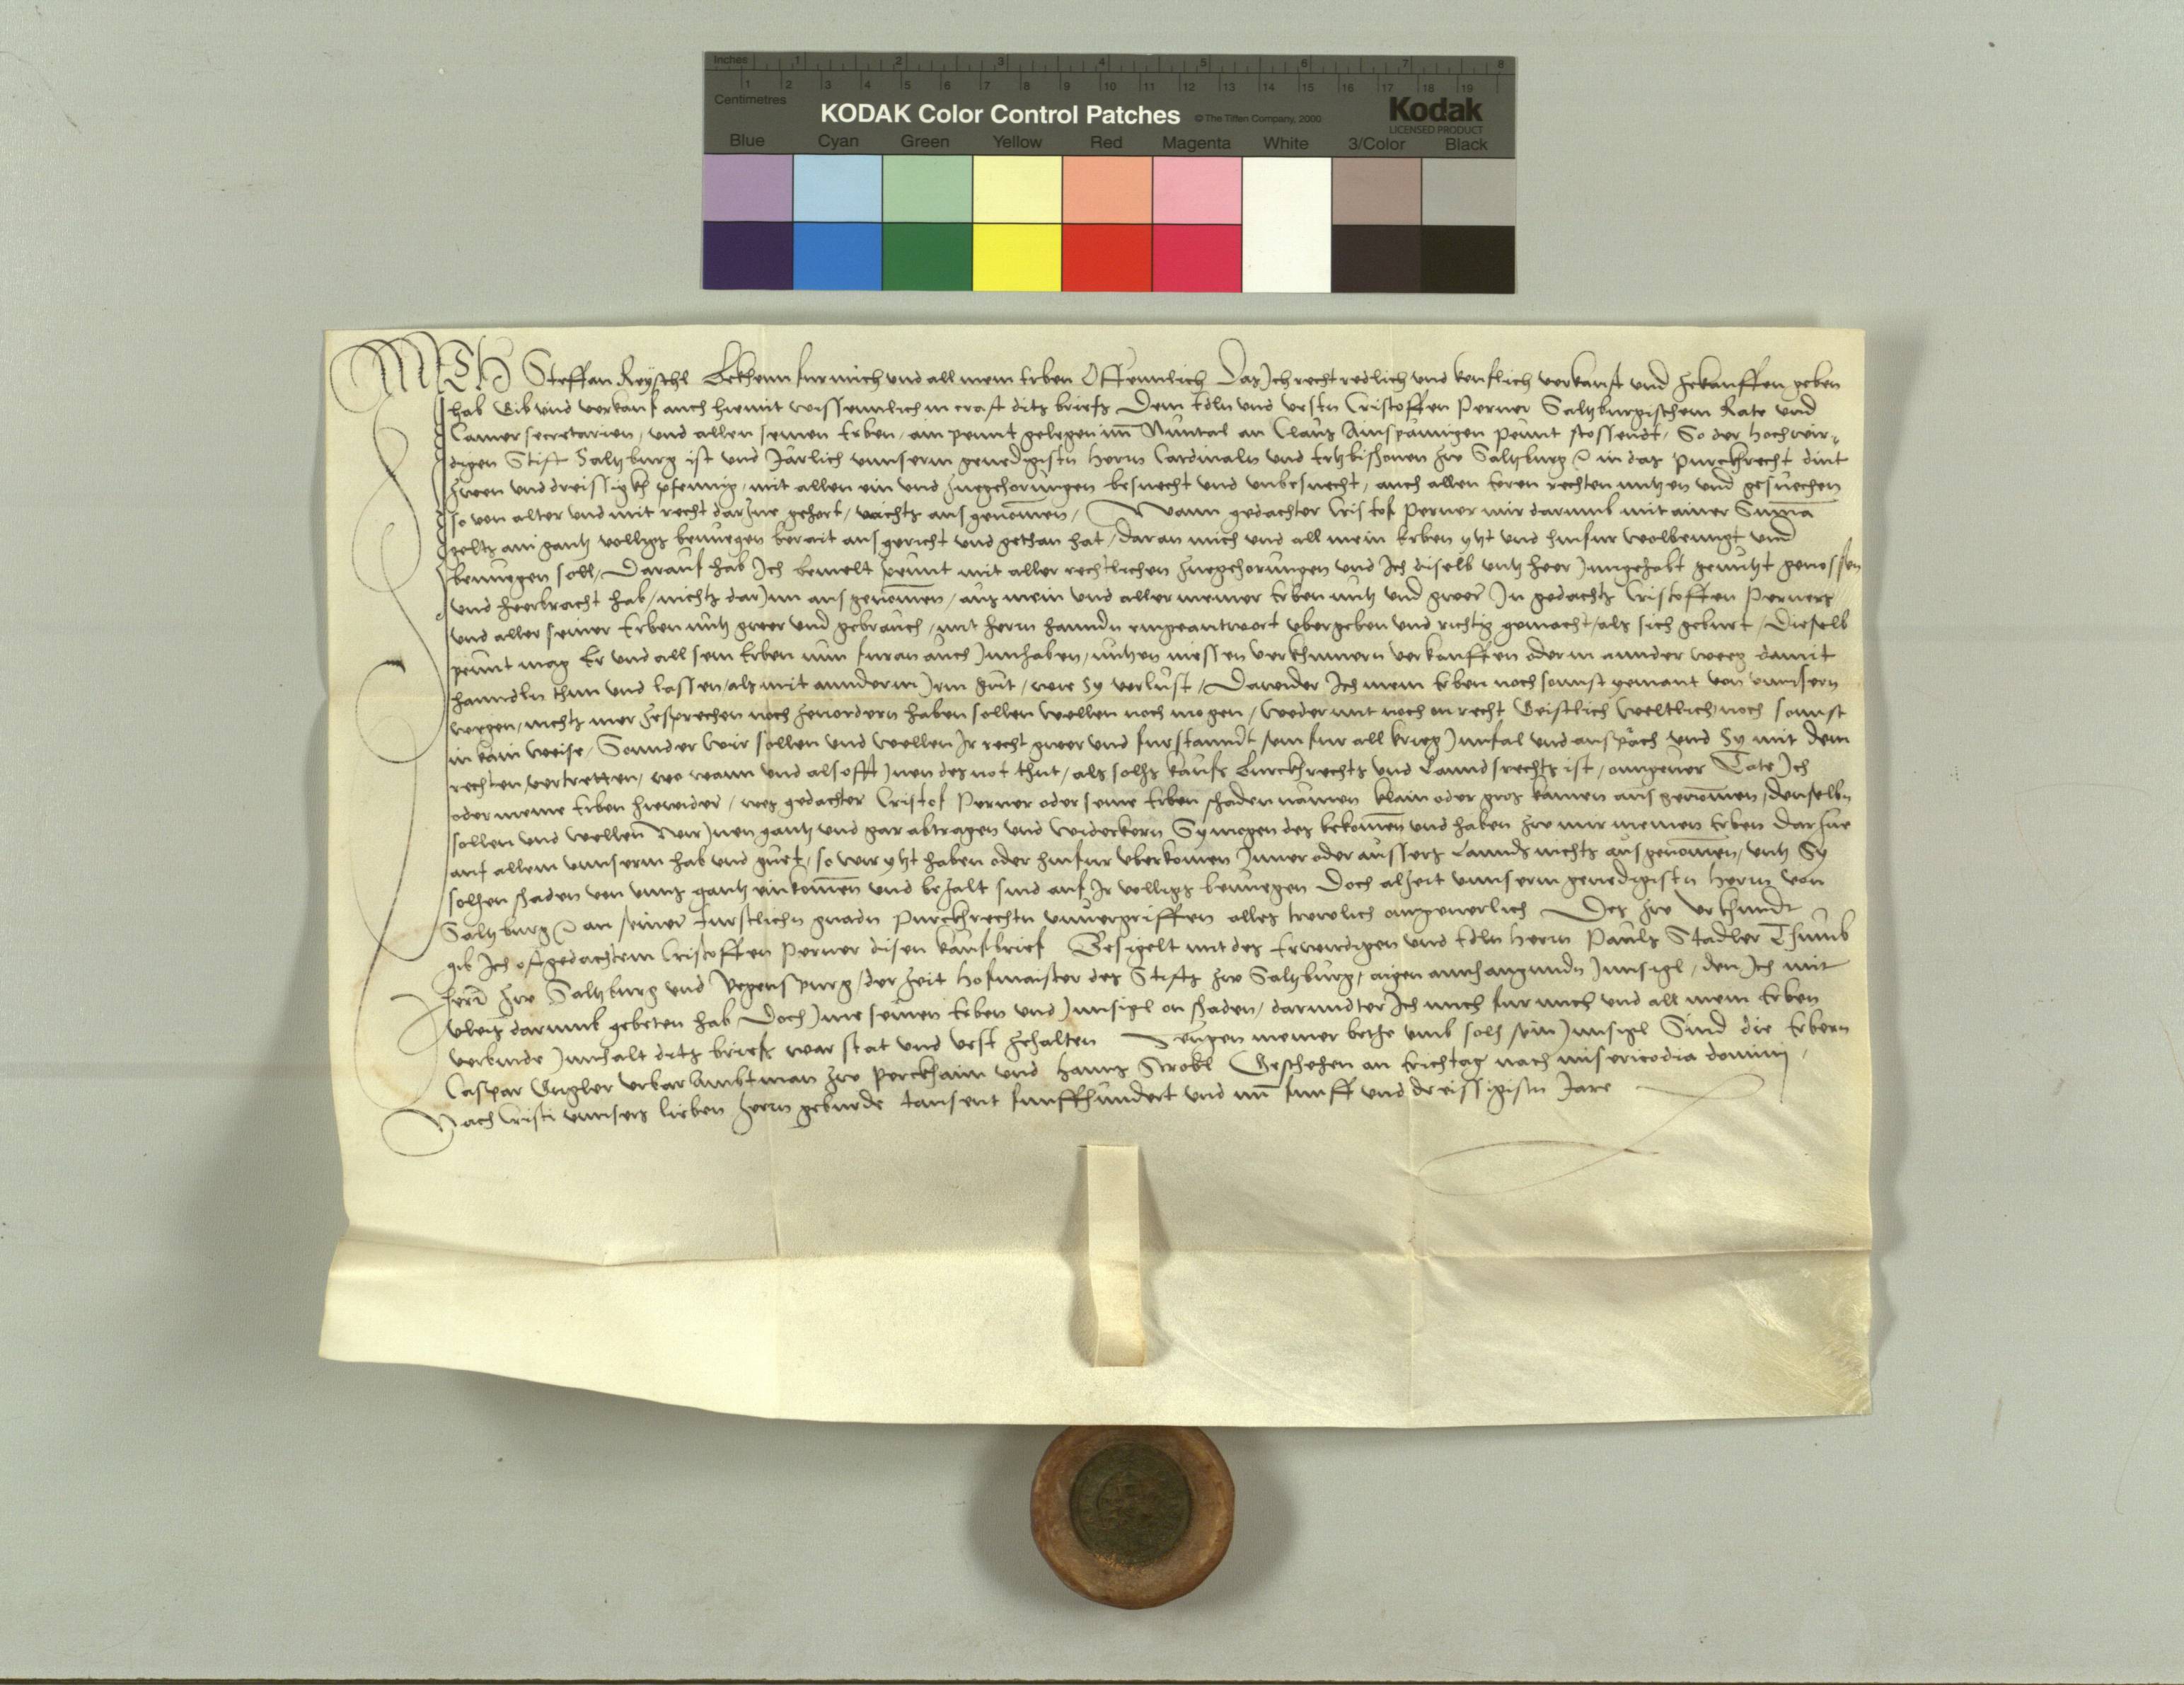 Inches 1 2 3 4 5 6 7 8
1 2 3 4 5 6 7 8 9 10 11 12 13 14 15 16 17 18 19
Centimetres
KODAK Color Control Patches © The Tiffen Company, 2000 Kodak
LICENSED PRODUCT
Blue Cyan Green Yellow Red Magenta White 3/Color Black
ICH Steffan Reyschl Bekhenn fur mich und all mein Erben Offennlich Das Ich recht redlich und keuflich verkauft und zekauffen geben
hab Gib und verkauf auch hiemit wissenntlich in craft ditz briefs Dem Edln und vestn Cristoffen Perner Saltzburgischem Rate und
Camer secretarien, und allen seinen Erben, ain peunt gelegen im Nuntal an Clauß Ainspanigen peunt stossendt, So der hochwir„
digen Stift Saltzburg ist und Järlich unnserm genedigistn herrn Cardinaln und Ertzbischouen zw Saltzburg in das Purckhrecht dint
zwen und dreissigkh pfennig, mit allen ein und zuegehorungen besuecht und unbesuecht, auch allen eren rechten nutzen und gesuechen
so von alter und mit recht darzue gehort, nichts ausgenomen, Wann gedachter Cristof Perner mir darumb mit ainer Suma
gelts ain gantz volligs benuegen berait ausgericht und gethan hat, daran mich und all mein Erben yetzt und hinfur wolbenuegt und
benuegen soll, Darauf hab Ich bemelt peunt mit aller rechtlichen zuegehorungen und Ich diselb untz heer Inngehabt genutzt genossen
und heerbracht hab, nichts darInn ausgenomen, aus mein und aller meiner Erben nutz und gweer In gedachts Cristoffen Perners
und aller seiner Erben nutz gweer und gebrauch, mit herrn hanndn eingeantwort ubergeben und richtig gemacht, als sich geburt, Dieselb
peunt mag Er und all sein Erben nun furan auch Innhaben, nutzen niessen verkhumern verkauffen oder in annder weeg damit
hanndln thun und lassen, als mit annderm Irm guet, wie Sy verlust, Dawider Ich mein Erben noch sonnst yemant von unnsern
wegen, nichts mer zesprechen noch zeuordern haben sollen wellen noch mogen, weder mit noch on recht Geistlich weltlich noch sonnst
in kain weise, Sonnder Wir sollen und wellen Ir recht gweer und furstanndt sein fur all krieg Innfal und anspräch und Sy mit dem
rechten vertretten, wo wann und alsofft Inen des not thut, als solhs kaufs Burckhrechts und Lanndsrechts ist, ongeuer Täte Ich
oder meine Erben hiewider, wes gedachter Cristof Perner oder seine Erben schaden nämen klain oder gros kainen ausgenomen, denselbn
sollen und wellen Wir Inen gantz und gar abtragen und widerkern Sy mogen des bekomen und haben zw mir meinen Erben darzue
auf allem unnserm hab und guet, so wir yetzt haben oder hinfur uberkomen Inner oder aussers Lannds nichts ausgenomen, untz Sy
solhen schaden von unns gantz einkomen und bezalt sind auf Ir volligs benuegen Doch alzeit unnserm genedigistn herrn von
Saltzburg an seiner Furstlichn gnadn Purckhrechtn unuergriffen alles trewlich ongeuerlich Des zw urkhundt
gib Ich oftgedachtem Cristoffen Perner disen kaufbrief Besigelt mit des Erwirdigen und Edln herrn Pauls Stadler Thumb
herrn zw Saltzburg und Regenspurg, der zeit hofmaister des Stifts zw Saltzburg, aigen annhangundn Innsigl, den Ich mit
vleis darumb gebeten hab Doch Ime seinen Erben und Innsigl on schaden, darundter Ich mich fur mich und all mein Erben
verbinde Innhalt ditz briefs war stät und vest zehalten Zeugen meiner bethe umb solh sein Innsigl Sind die Erbern
Caspar Angler urbar Ambtman zw Perckhaim und Hanns Strobl Geschehen an Erichtag nach misericordia domini,
Nach Cristi unnsers lieben herrn geburde tausent funffhundert und im funff und dreissigistn Jare